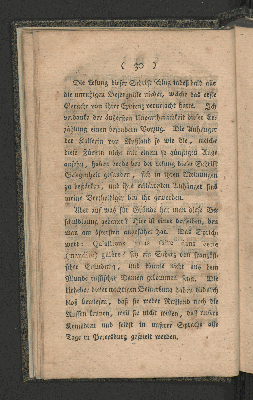 ( 30 )
Die Lesung dieser Schrift schlug indeß bald alle
die unruhigen Besorgnisse nieder, welche das erste
Gerücht von ihrer Existenz verursacht hatte. Ich
verdanke der äußersten Unpartheilichkeit dieser Er-
zählung einen doppelten Vorzug. Die Anhänger
der Kaiserin von Rußland so wie die, welche
diese Fürstin nicht mit einem so günstigen Auge
ansehn, haben beide bei der Lesung dieser Schrift
Gelegenheit gefunden, sich in ihren Meinungen
zu bestärken, und ihre erklärtesten Anhänger sind
meine Vertheidiger bei ihr geworden.
Aber auf was für Gründe hat man diese Be-
schuldigung gebauet? Hier ist einer derselben, den
man am öftersten angeführt hat. Das Sprich-
wort:
sey ein Scherz von französi-
scher Erfindung, und könne nicht aus dem
Munde russischer Damen gekommen seyn. Die
Urheber dieser wichtigen Bemerkung haben dadurch
bloß bewiesen, daß sie weder Rußland noch die
Russen kennen, weil sie nicht wissen, daß unsre
Komödien und selbst in unsrer Sprache alle
Tage in Petersburg gespielt werden.